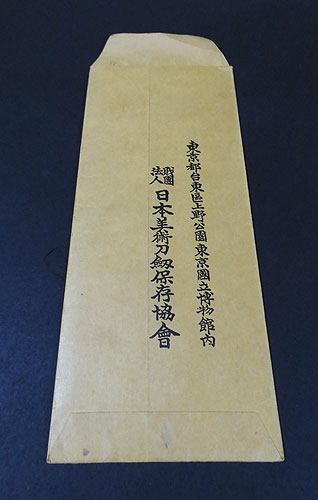 東京都台東區上野公園東京國立博物館内
財團法人日本美術刀劔保存協會